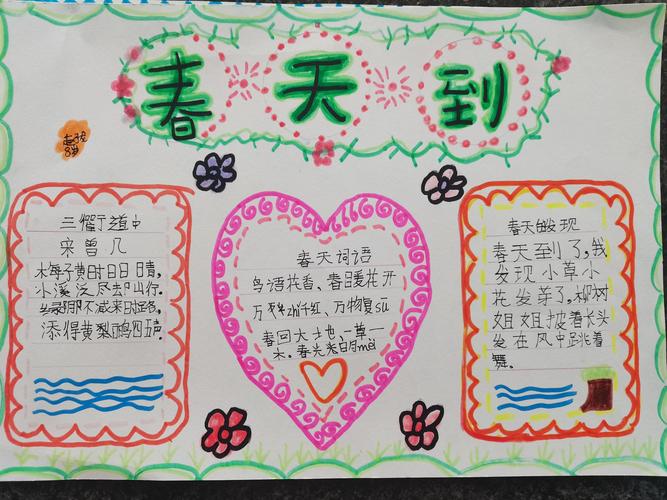 春天到
8岁
三衢道中
宋曾几
梅子黄时日日晴,
小溪泛尽去山行.
绿阴不减来时路,
添得黄鹂四五声.
春天词语
鸟语花香、春暖花开
千红、万物复sū
春回大地、一草一
木、春光明mèi
春天的发现
春天到了,我
发现小草小
花发芽了,柳树
姐姐披着长头
发在风中跳着
舞.